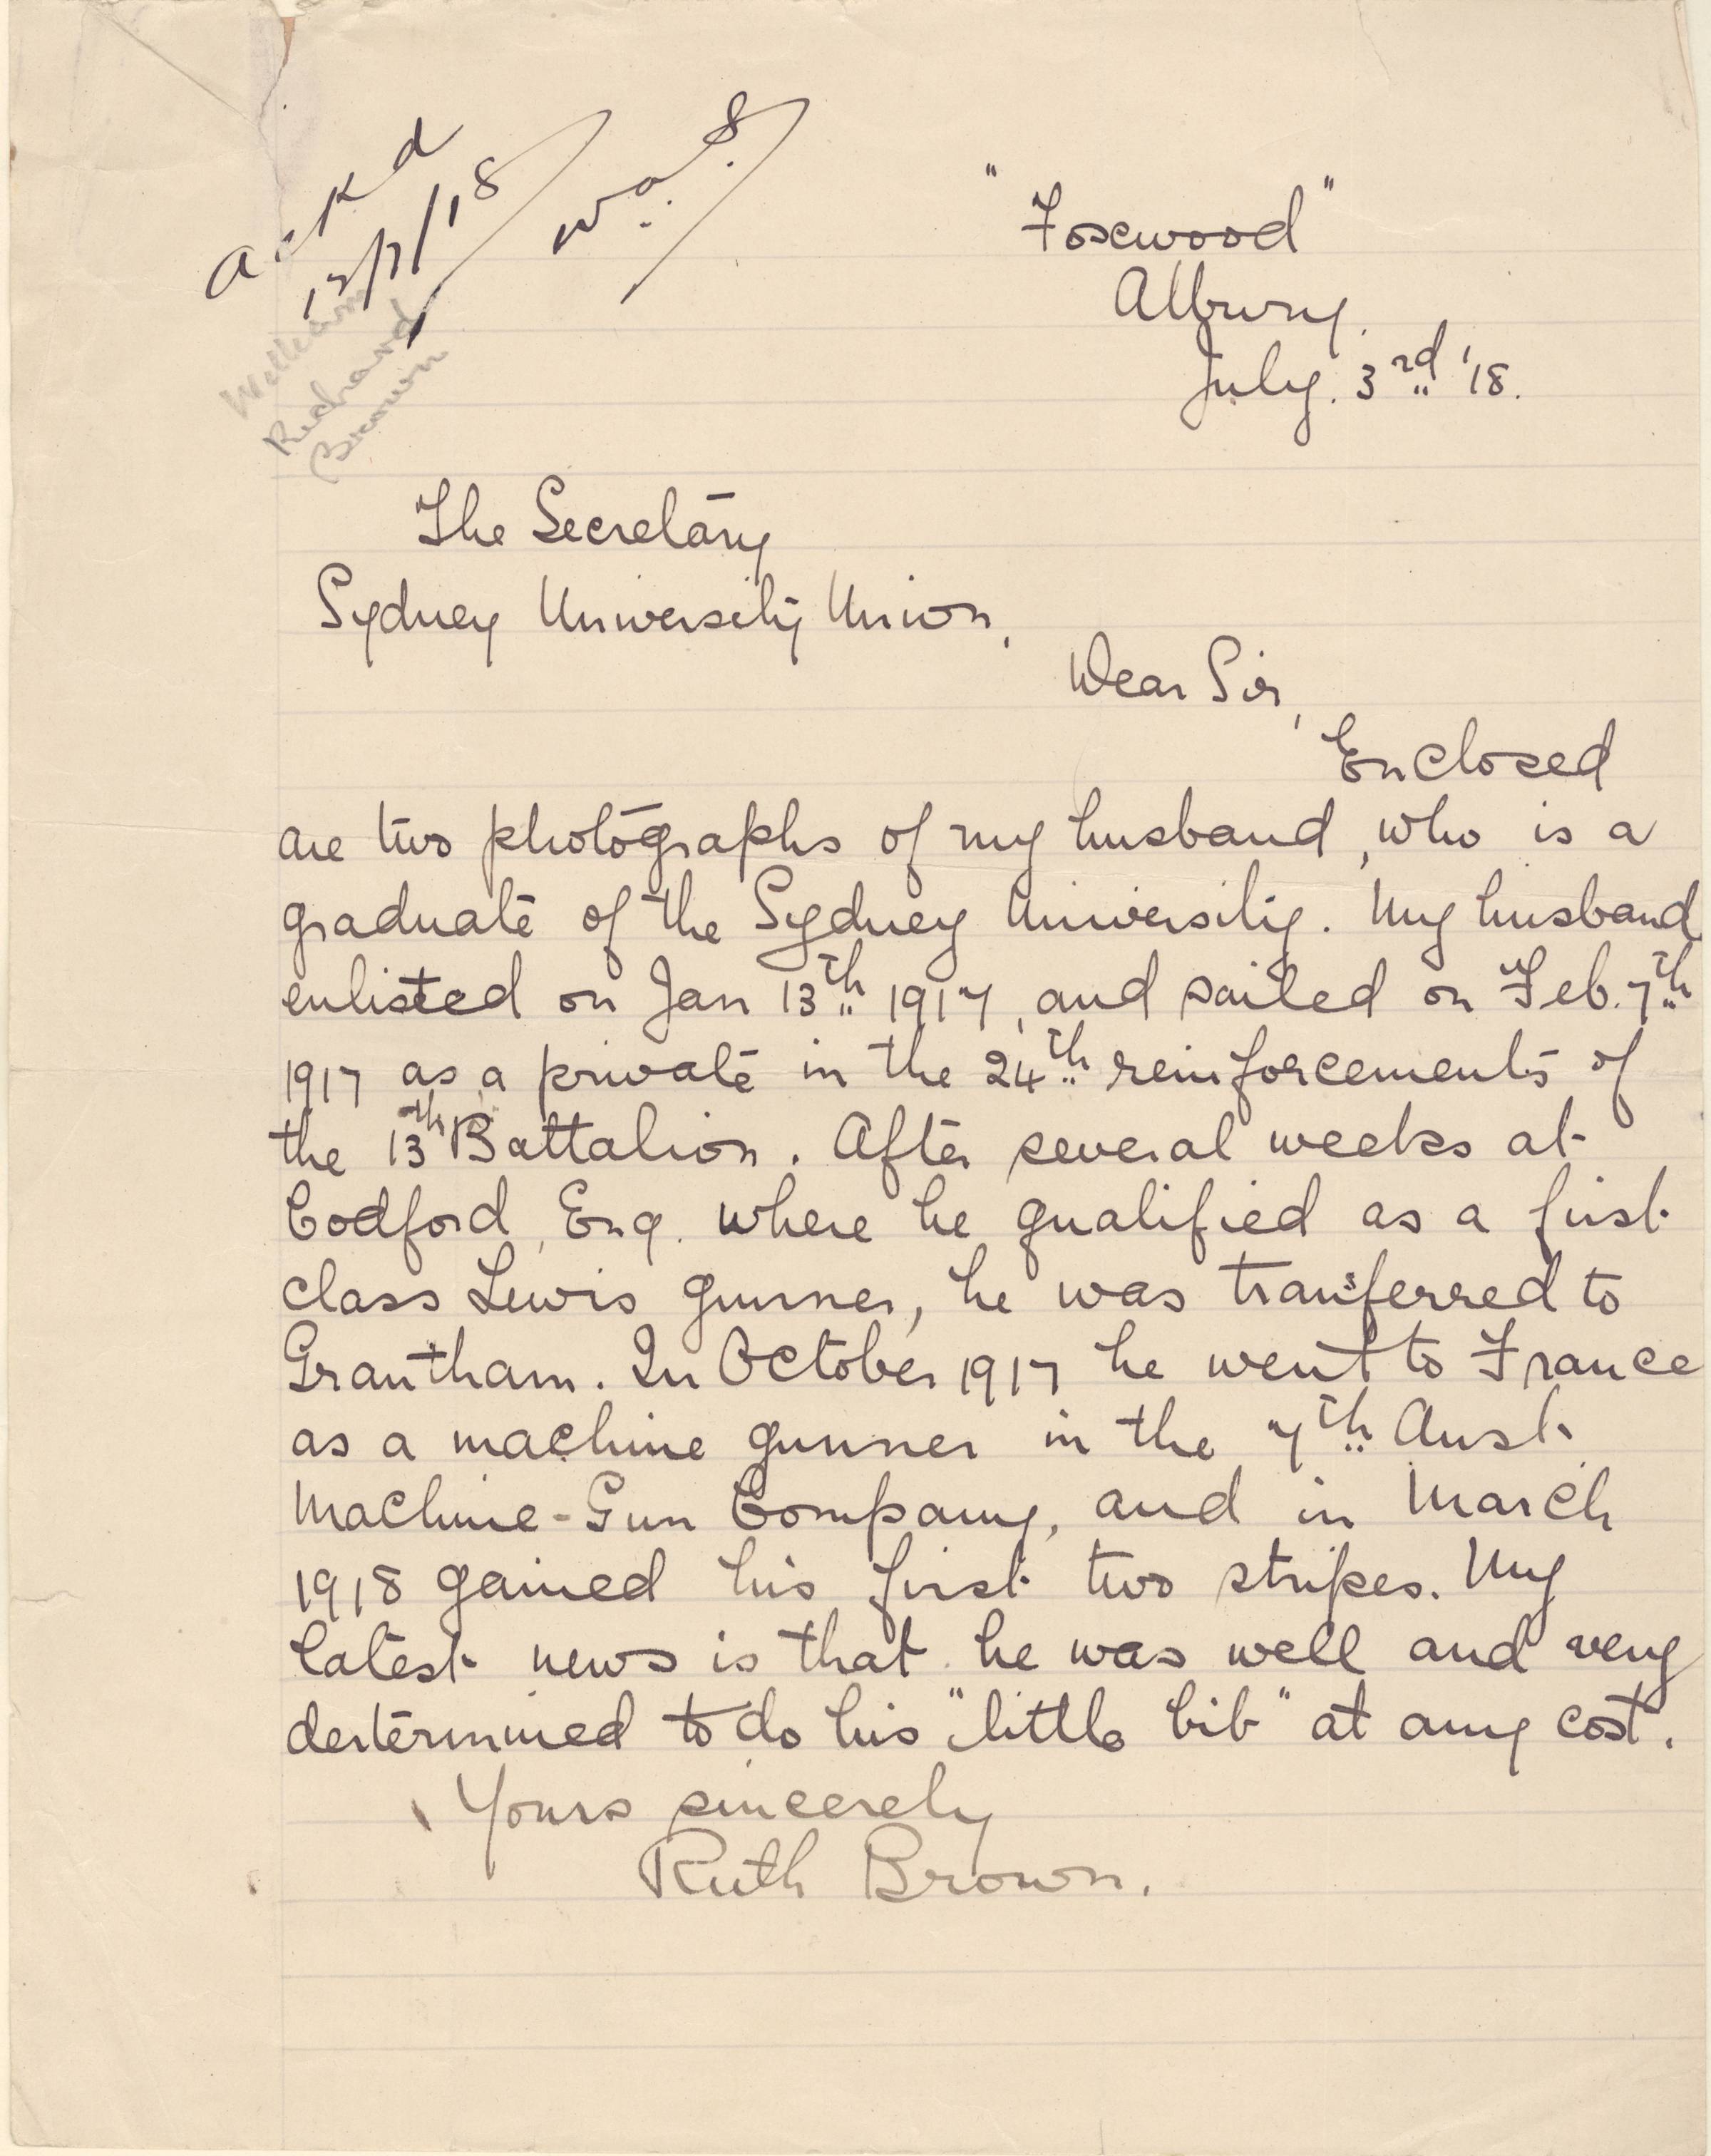 ackd
12/7/18
W.a.S.
William
Richard
Brown
"Foxwood"
Albury.
July. 3rd '18.
The Secretary
Sydney University Union,
Dear Sir,
Enclosed
are two photographs of my husband, who is a
graduate of the Sydney University. My husband
enlisted on Jan 13th 1917, and sailed on Feb. 7th
1917 as a private in the 24th reinforcements of
the 13th Battalion. After several weeks at
Codford, Eng. where he qualified as a first
class Lewis gunner, he was transferred to
Grantham. In October 1917 he went to France
as a machine gunner in the 7th Aust.
Machine-Gun Company, and in March
1918 gained his first two stripes. My
latest news is that he was well and very
determined to do his "little bit" at any cost.
Yours sincerely
Ruth Brown.